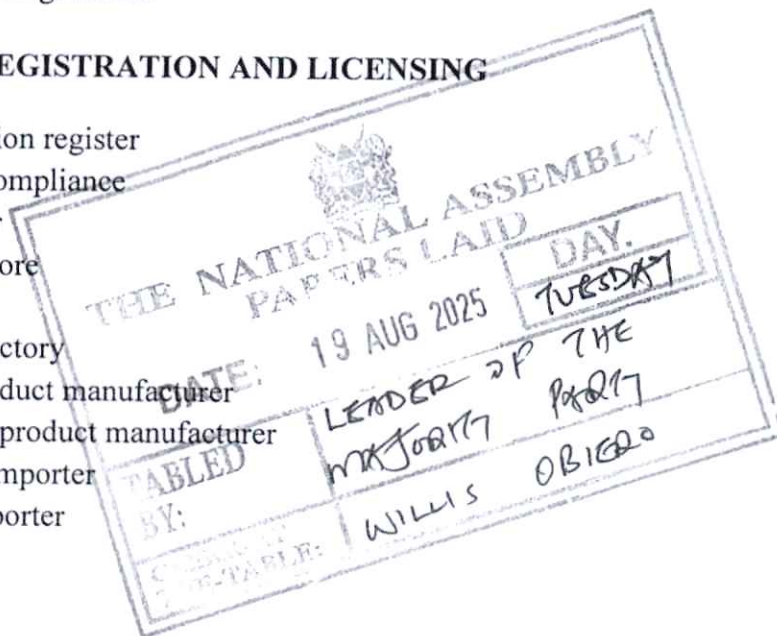 EGISTRATION AND LICENSING
ion register
ompliance
ore
ctory
duct manufacturer
product manufacturer
mporter
porter
THE NATIONAL ASSEMBLY
PAPERS LAID
DATE: 19 AUG 2025
DAY.
TUESDAY
TABLED
BY:
LEADER OF THE
MAJORITY PARTY
WILLIS OBIERO